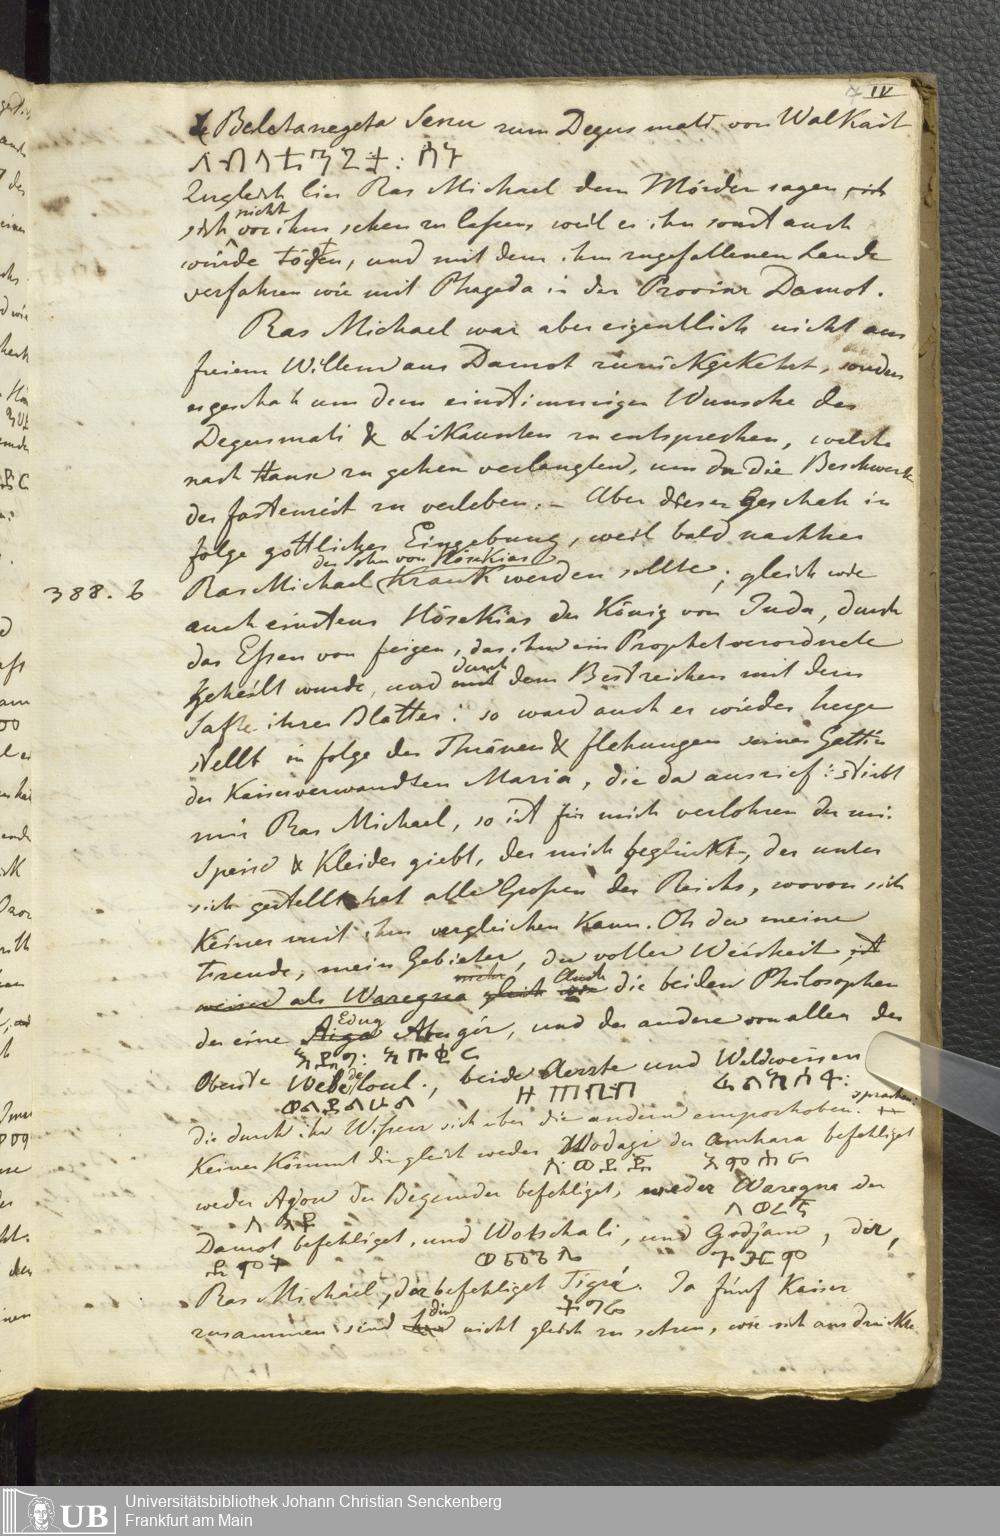 7 IV
Beletanegeta Senu zum Degusmati von Walkait
Zugleich lies Ras Michael dem Mörder sagen,
sich nicht vor ihm sehen zu lassen, weil er ihn sonst auch
würde töden, und mit dem ihm zugefallenen Lande
verfahren wie mit Phageda in der Provinz Damot.
Ras Michael war aber eigentlich nicht aus
freiem Willen aus Damot zurückgekehrt, sondern
es geschah um dem einstimmigen Wunsche der
Degusmati & Likaunten zu entsprechen, welche
nach Hause zu gehen verlangten, um da die Beschwerde
der fastenzeit zu verleben. – Aber dieses geschah in
folge göttlicher Eingebung, weil bald nachher
der Sohn von Hösekias
388. b Ras Michael krank werden sollte; gleich wie
auch einstens Hösekias der König von Juda, durch
das Essen von feigen, das ihm ein Prophet verordnete
geheilt wurde, und durch dem Bestreichen mit dem
Safte ihrer Blätter: so ward auch er wieder herge
stellt in folge der Thränen & flehungen seiner Gattin
der Kaiserverwandten Maria, die da ausrief: stirbt
mir Ras Michael, so ist für mich verlohren der mir
Speise & Kleider giebt, der mich beglückt, der unter
sich gestellt hat alle Grossen des Reichs, wovon sich
Keiner mit ihm vergleichen kann. Oh du meine
freude, mein Gebieter, du voller Weisheit ist
weiser als Waregna Auch die beiden Philosophen
der eine Edug Abugir, und der andere von allen der
Oberste Weldeloul., beide Aerzte und Weldweisen
die durch ihr Wissen sich über die andern emporhoben. sprachen:
Keiner kömmt dir gleich weder Wodagi der Amhara befehliget
weder Agou der Begemder befehliget, weder Waregna der
Damot befehliget, und Wotschali, und Godjam, dir,
Ras Michael, der befehliget Tigré. Ja fünf Kaiser
zusammen sind dir nicht gleich zu setzen, wie sich ausdrückte
Universitätsbibliothek Johann Christian Senckenberg
Frankfurt am Main
UB